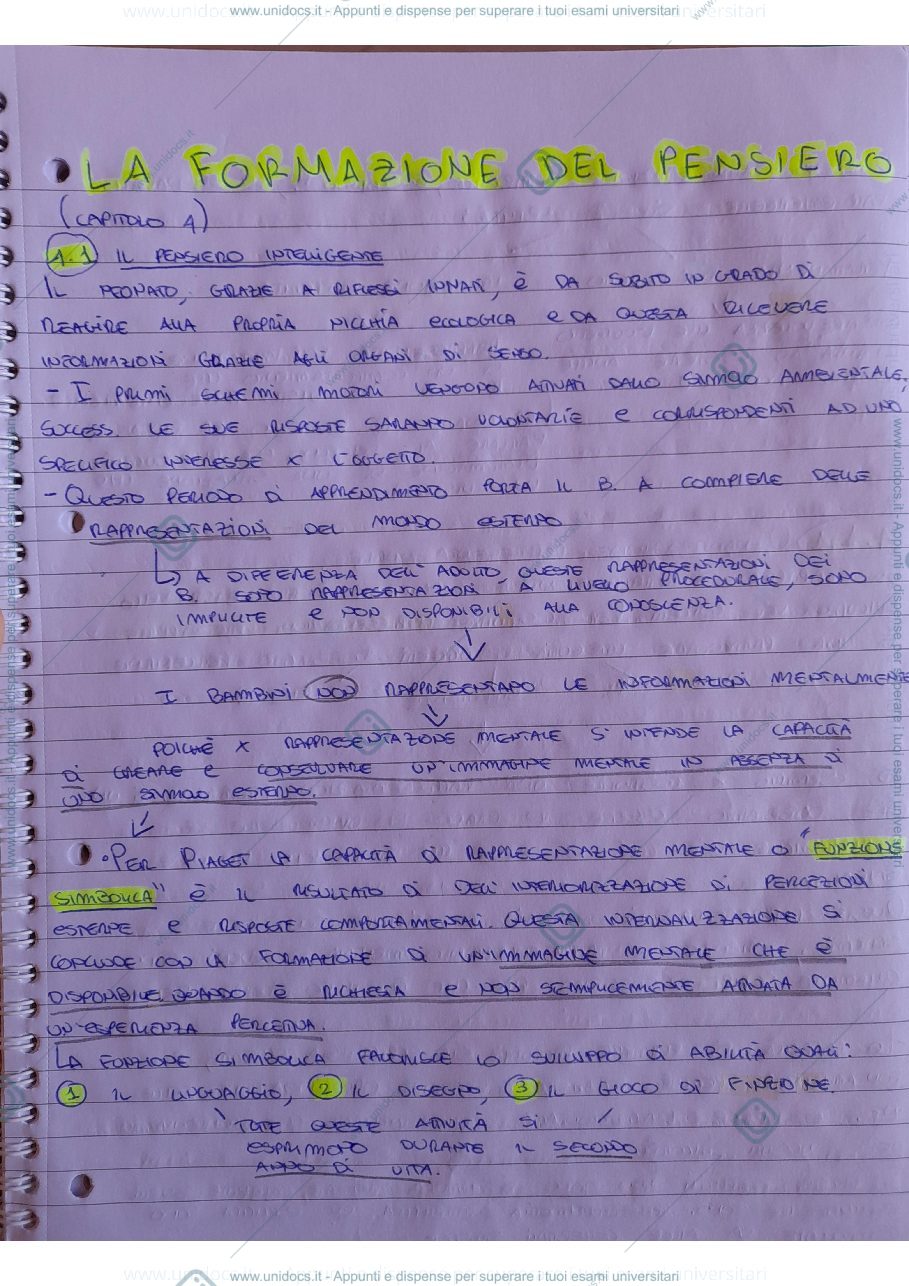 www.unidocs.it - Appunti e dispense per superare i tuoi esami universitari
LA FORMAZIONE DEL PENSIERO
(CAPITOLO 4)
4.1 IL PENSIERO INTELLIGENTE
IL NEONATO, GRAZIE A RIFLESSI INNATI, È DA SUBITO IN GRADO DI
REAGIRE ALLA PROPRIA NICCHIA ECOLOGICA E DA QUESTA RICEVERE
INFORMAZIONI GRAZIE AGLI ORGANI DI SENSO.
- I PRIMI SCHEMI MOTORI VENGONO ATTIVATI DALLO STIMOLO AMBIENTALE,
SUCCESS. LE SUE RISPOSTE SARANNO VOLONTARIE E CORRISPONDENTI AD UNO
SPECIFICO INTERESSE X L'OGGETTO.
- QUESTO PERIODO DI APPRENDIMENTO PORTA IL B. A COMPIERE DELLE
RAPPRESENTAZIONI DEL MONDO ESTERNO
↳ A DIFFERENZA DELL'ADULTO QUESTE RAPPRESENTAZIONI DEI
B. SONO RAPPRESENTAZIONI A LIVELLO PROCEDURALE, SONO
IMPLICITE E NON DISPONIBILI ALLA CONOSCENZA.
↓
I BAMBINI NON RAPPRESENTANO LE INFORMAZIONI MENTALMENTE
↓
POICHÈ X RAPPRESENTAZIONE MENTALE SI INTENDE LA CAPACITÀ
DI CREARE E CONSERVARE UN'IMMAGINE MENTALE IN ASSENZA DI
UNO STIMOLO ESTERNO.
↙
• PER PIAGET LA CAPACITÀ DI RAPPRESENTAZIONE MENTALE O "FUNZIONE
SIMBOLICA" È IL RISULTATO DI DELL'INTERIORIZZAZIONE DI PERCEZIONI
ESTERNE E RISPOSTE COMPORTAMENTALI. QUESTA INTERNALIZZAZIONE SI
CONCLUDE CON LA FORMAZIONE DI UN'IMMAGINE MENTALE CHE È
DISPONIBILE QUANDO È RICHIESTA E NON SEMPLICEMENTE ATTIVATA DA
UN'ESPERIENZA PERCETTIVA.
LA FUNZIONE SIMBOLICA FAVORISCE LO SVILUPPO DI ABILITÀ QUALI:
1 IL LINGUAGGIO, 2 IL DISEGNO, 3 IL GIOCO DI FINZIONE.
TUTTE QUESTE ATTIVITÀ SI
ESPRIMONO DURANTE IL SECONDO
ANNO DI VITA.
www.unidocs.it - Appunti e dispense per superare i tuoi esami universitari